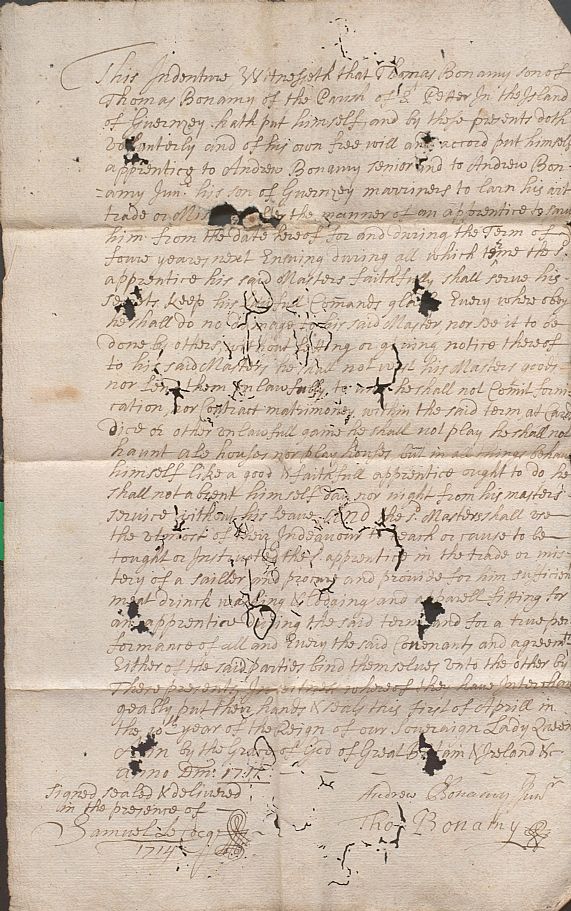 This Indenture Witnesseth that Thomas Bonamy son of
Thomas Bonamy of the Parish of St Petter In the Island
of Guernzey hath put himself and by these presents doth
Volunterly and of his own free will and accord put himself
apprentice to Andrew Bonamy senior and to Andrew Bon-
-amy Junr his son of Guernzey marriners to larn his art
trade or the manner of an apprentice to serve
him from the date hereof for and during the Term of
foure yeares next Ensuing during all which terme the sd
apprentice his said Masters faithfully shall serve his
keep his Comands Every where obey
he shall do no damage to his said Master nor see it to be
done by others without letting or giving notice thereof
to his said Masters he shall not wast his Masters goods
nor lend them unlawfully to any he shall not Comit forni
cation, nor Contract matrimoney within the said term at Card
Dice or other unlawfull game he shall not play he shall not
haunt ale houses nor play houses but in all things behave
himself like a good & faithfull apprentice ought to do he
shall not absent himself day nor night from his masters
service without his leave And the sd Masters shall use
the utmost of their Endeavour to teach or cause to be
tought or Instructed the sd apprentice in the trade or mis-
tery of a sailler and procure and provide for him sufficien
meat drinck washing & lodging and apparell fitting for
an apprentice during the said term and for a true per
formance of all and Every the said Covenants and agreemts
Either of the said parties bind themselves unto the other by
These presents In witness whereof they have Interchan
geably put their hands & seals this first of Aprill in
the year of the Reign of our Soveraign Lady Queen
by the Grace of God of Great & Ireland &c
anno Dm:
Signed sealed & delivered
in the presence of
Andrew Bonamy Junr
Samuel
Tho: Bonamy
1714